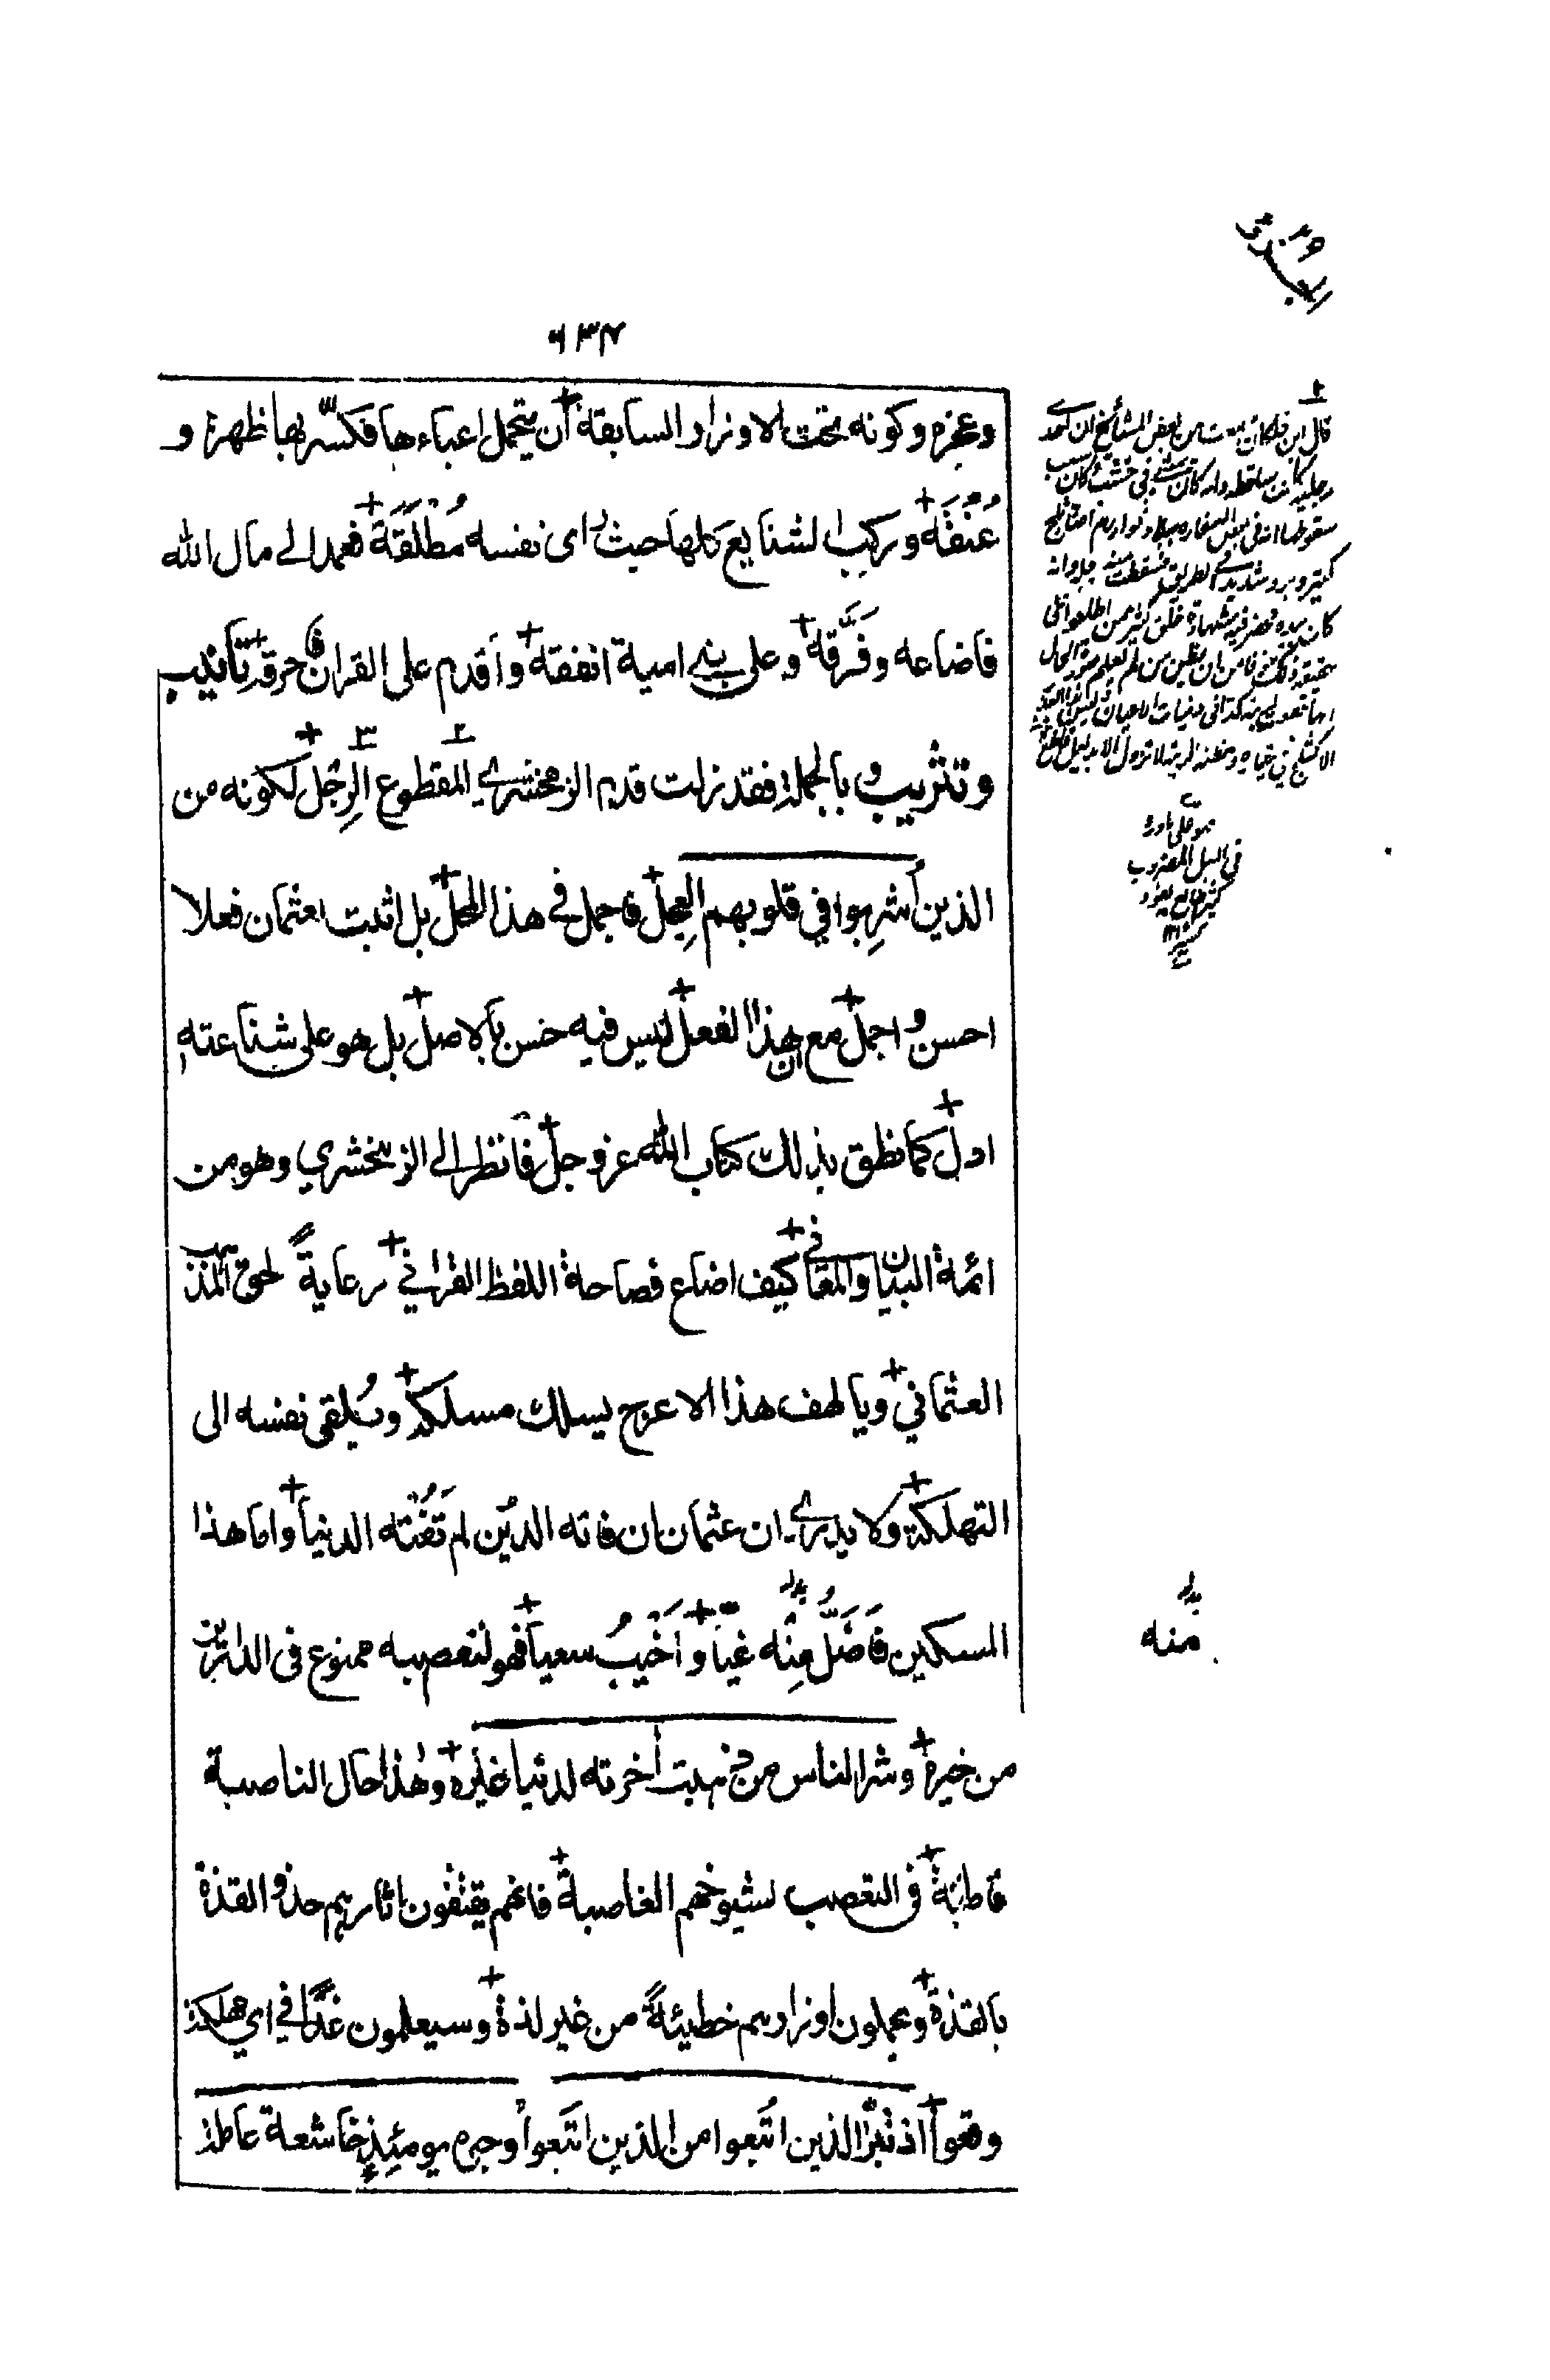 ٦٣٧
وعجزه وكونه تحت الاوزار السابقة أن يتحمل اعباءها فكسّر بها ظهره و
عُنُقَه وركب الشنايع كلها حيث رأى نفسه مُطْلَقَةً فعمد الى مال الله
فاضاعه وفَرَّقه وعلى بني امية انفقه وأقدم على القران فحرقه تأنيب
وتثريب وبالجملة فقد زلت قدم الزمخشري المقطوع الرِجْل لكونه من
الذين أُشرِبوا في قلوبهم العِجل فاجمل في هذا المحل بل اثبت لعثمان فعلا
احسن واجمل مع ان هذا الفعل ليس فيه حسن بالاصل بل هو على شناعته
ادل كما نطق بذلك كتاب الله عز وجل فانظر الى الزمخشري وهو من
ائمة البيان والمعاني كيف اضاع فصاحة اللفظ القراني رعايةً لحق المذهب
العثماني ويا لهف هذا الاعرج يسلك مسلكه ويُلقى نفسه الى
التهلكة ولا يدري ان عثمان ان فاته الدين لم تَفُتْه الدنيا واما هذا
المسكين فَاَضَلُّ مِنْه غيّا وأَخْيَبُ سعيا فهو لتعصبه ممنوع فى الدارين
من خيره وشر الناس من ذهبت أخرته لدنيا غيره وهذا حال الناصبة
قاطبة فى التعصب لشيوخهم الغاصبة فانهم يقتفون اثارهم حذو القذة
بالقذة ويحملون اوزارهم خطيئةً من غير لذة وسيعلمون غدًا في اي مهلكة
وقعوا اذ تبرّا الذين اتُّبعوا من الذين اتَّبعوا وجوه يومئذٍ خاشعة عاملة
قال ابن خلكان سمعت من بعض المشائخ ان احدى
رجليه كانت ساقطة وانه كان يمشي في خشب وكان سبب
سقوطها انه في بعض اسفاره ببلاد خوارزم اصابه ثلج
كثير وبرد شديد في الطريق فسقطت منه رجله وانه
كان بيده محضر فيه شهادة خلق كثير ممن اطلعوا على
منه